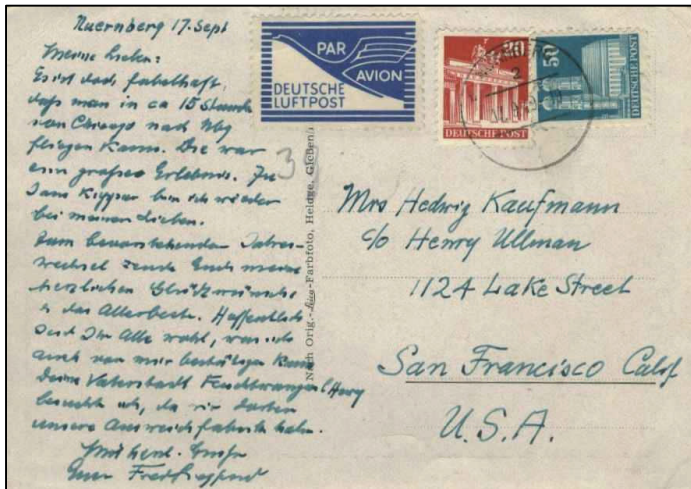 Nuernberg 17. Sept
Meine Lieben:
Es ist doch fabelhaft,
daß man in ca 15 Stunden
von Chicago nach Nbg
fliegen kann. Die war
ein großes Erlebnis. Zu
Jom Kippur bin ich wieder
bei meinen Lieben.
Zum bevorstehenden Jahres-
wechsel sende Euch meine
herzlichen Glückwünsche
& das Allerbeste. Hoffentlich
seid Ihr Alle wohl, was ich
auch von mir bestätigen kann
Deine Vaterstadt Feuchtwangen
besuchte ich, da wir dorten
unsere Ausweichfabrik haben.
Euer
PAR
AVION
DEUTSCHE
LUFTPOST
20
DEUTSCHE POST
50
DEUTSCHE POST
2
30
Nach Orig.-Farbfoto, Heldge, Gießen
Mrs Hedwig Kaufmann
c/o Henry Ullman
1124 Lake Street
San Francisco Calif
U.S.A.